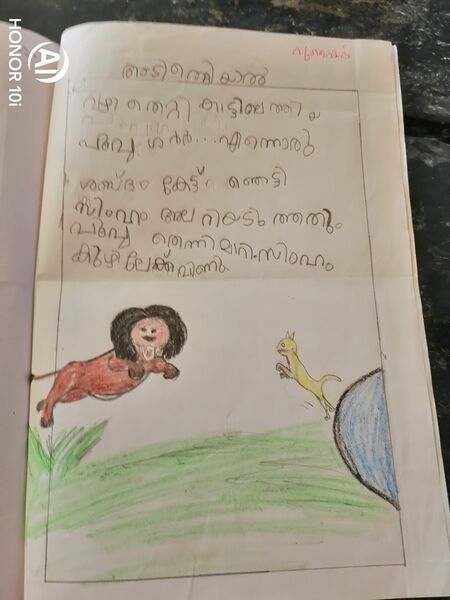 HONOR 10i
AI
അടിതെറ്റിയാൽ
വഴി തെറ്റി കാട്ടിലെത്തി
പൂച്ച ഗർർ... എന്നൊരു
ശബ്ദം കേട്ട് ഞെട്ടി
സിംഹം അലറിയടുത്തതും
പൂച്ച തെന്നിമാറി. സിംഹം
കുഴിയിലേക്ക് വീണു.